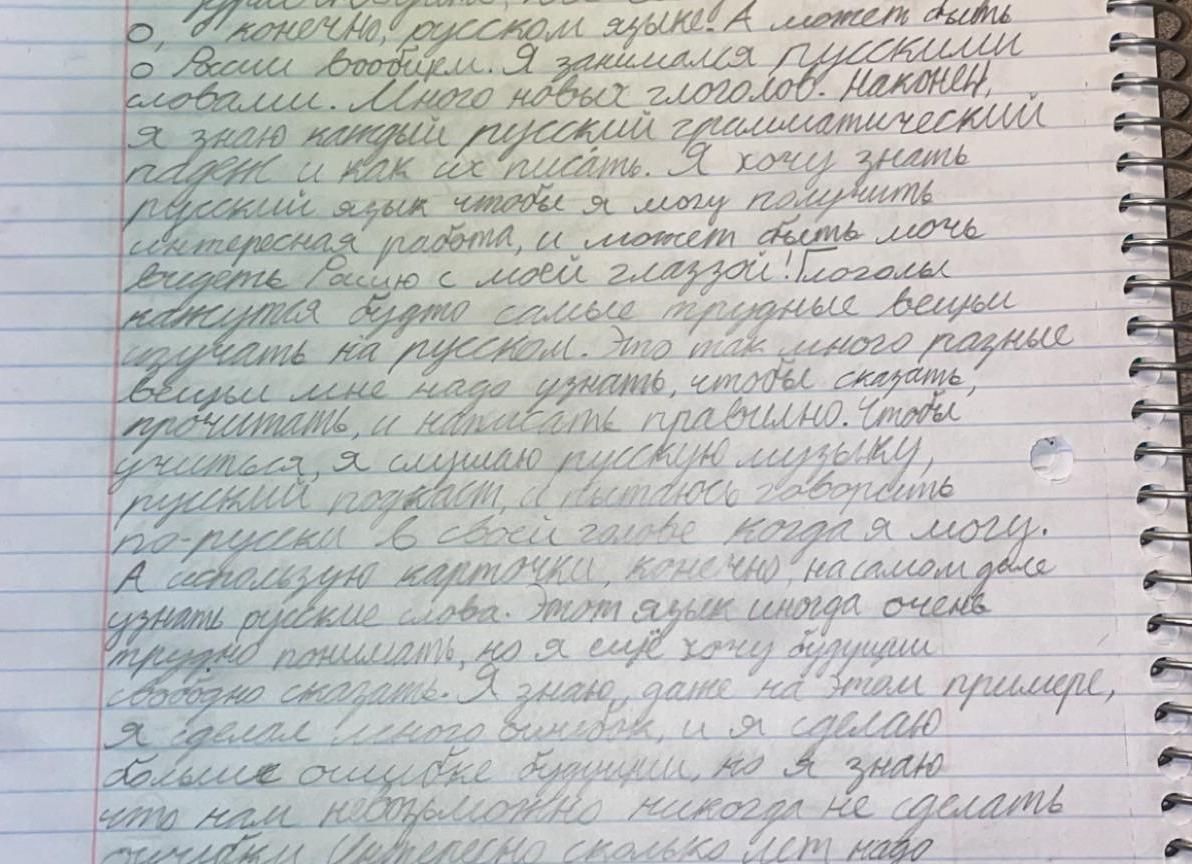 о, конечно, русском языке. А может быть
о Расии вообщем. Я занимался русскими
словами. Много новых глоголов. Наконец,
я знаю каждый русский грамматический
падеж и как их писать. Я хочу знать
русский язык чтобы я могу получить
интересная работа, и может быть мочь
видеть Расию с моей глаззой! Глоголы
кажутся будто самые трудные вещьи
изучать на русском. Это так много разные
вещьи мне надо узнать, чтобы сказать,
прочитать, и написать правилно. Чтобы
учиться, я слушаю русскую музыку,
русский подкаст, и пытаюсь говорить
по-русски в своей голове когда я могу.
А использую карточки, конечно, на самом деле
узнать русские слова. Этот язык иногда очень
трудно понимать, но я ещё хочу будущии
свободно сказать. Я знаю, даже на этом примере,
я сделал много ошибок, и я сделаю
больше ошибке будущии, но я знаю
что нам невозьможно никогда не сделать
ошибки Интересно сколько лет надо